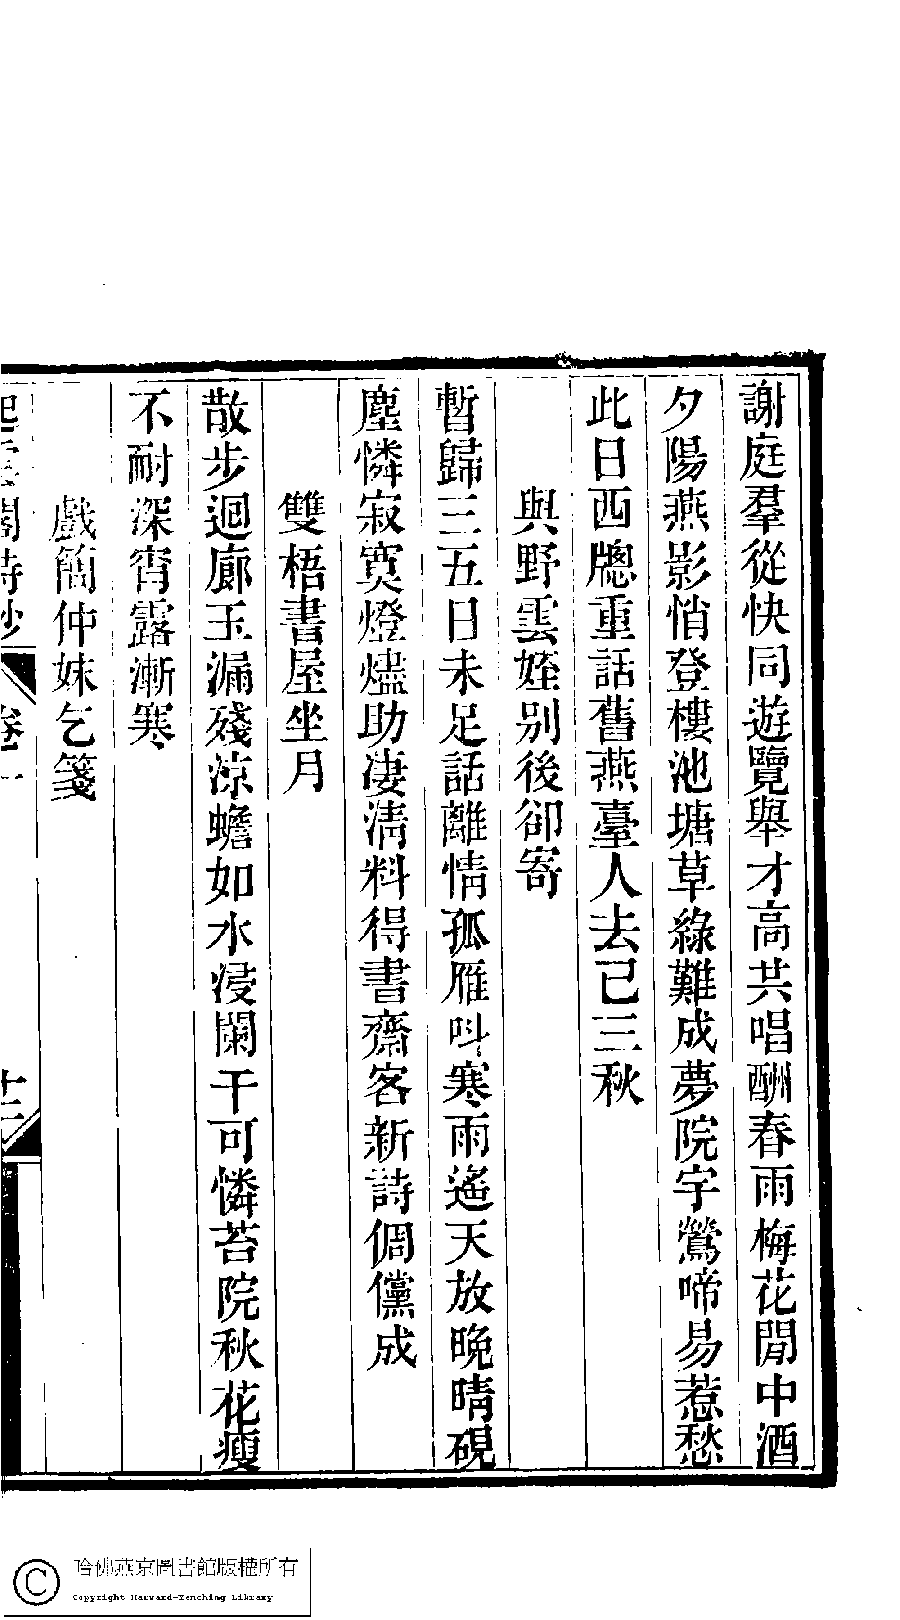 謝庭羣從快同遊覽舉才高共唱酬春雨梅花閒中酒
夕陽燕影悄登樓池塘草綠難成夢院宇鶯啼易惹愁
此日西牕重話舊燕臺人去已三秋
與野雲姪别後卻寄
暫歸三五日未足話離情孤雁呌寒雨遙天放晚晴硯
塵憐寂寞燈燼助凄清料得書齋客新詩倜儻成
雙梧書屋坐月
散步迴廊玉漏殘涼蟾如水浸闌干可憐苔院秋花瘦
不耐深宵露漸寒
戲簡仲妹乞箋
閣詩鈔 卷一 十二
哈佛燕京圖書館版權所有
Copyright Harvard-Yenching Library